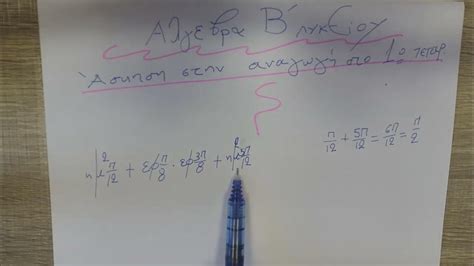 Άλγεβρα Β΄ Λυκείου
Άσκηση στην αναγωγή στο 1ο τεταρ.
ημ²π/12 + εφπ/8 · εφ3π/8 + ημ²5π/12
π/12 + 5π/12 = 6π/12 = π/2